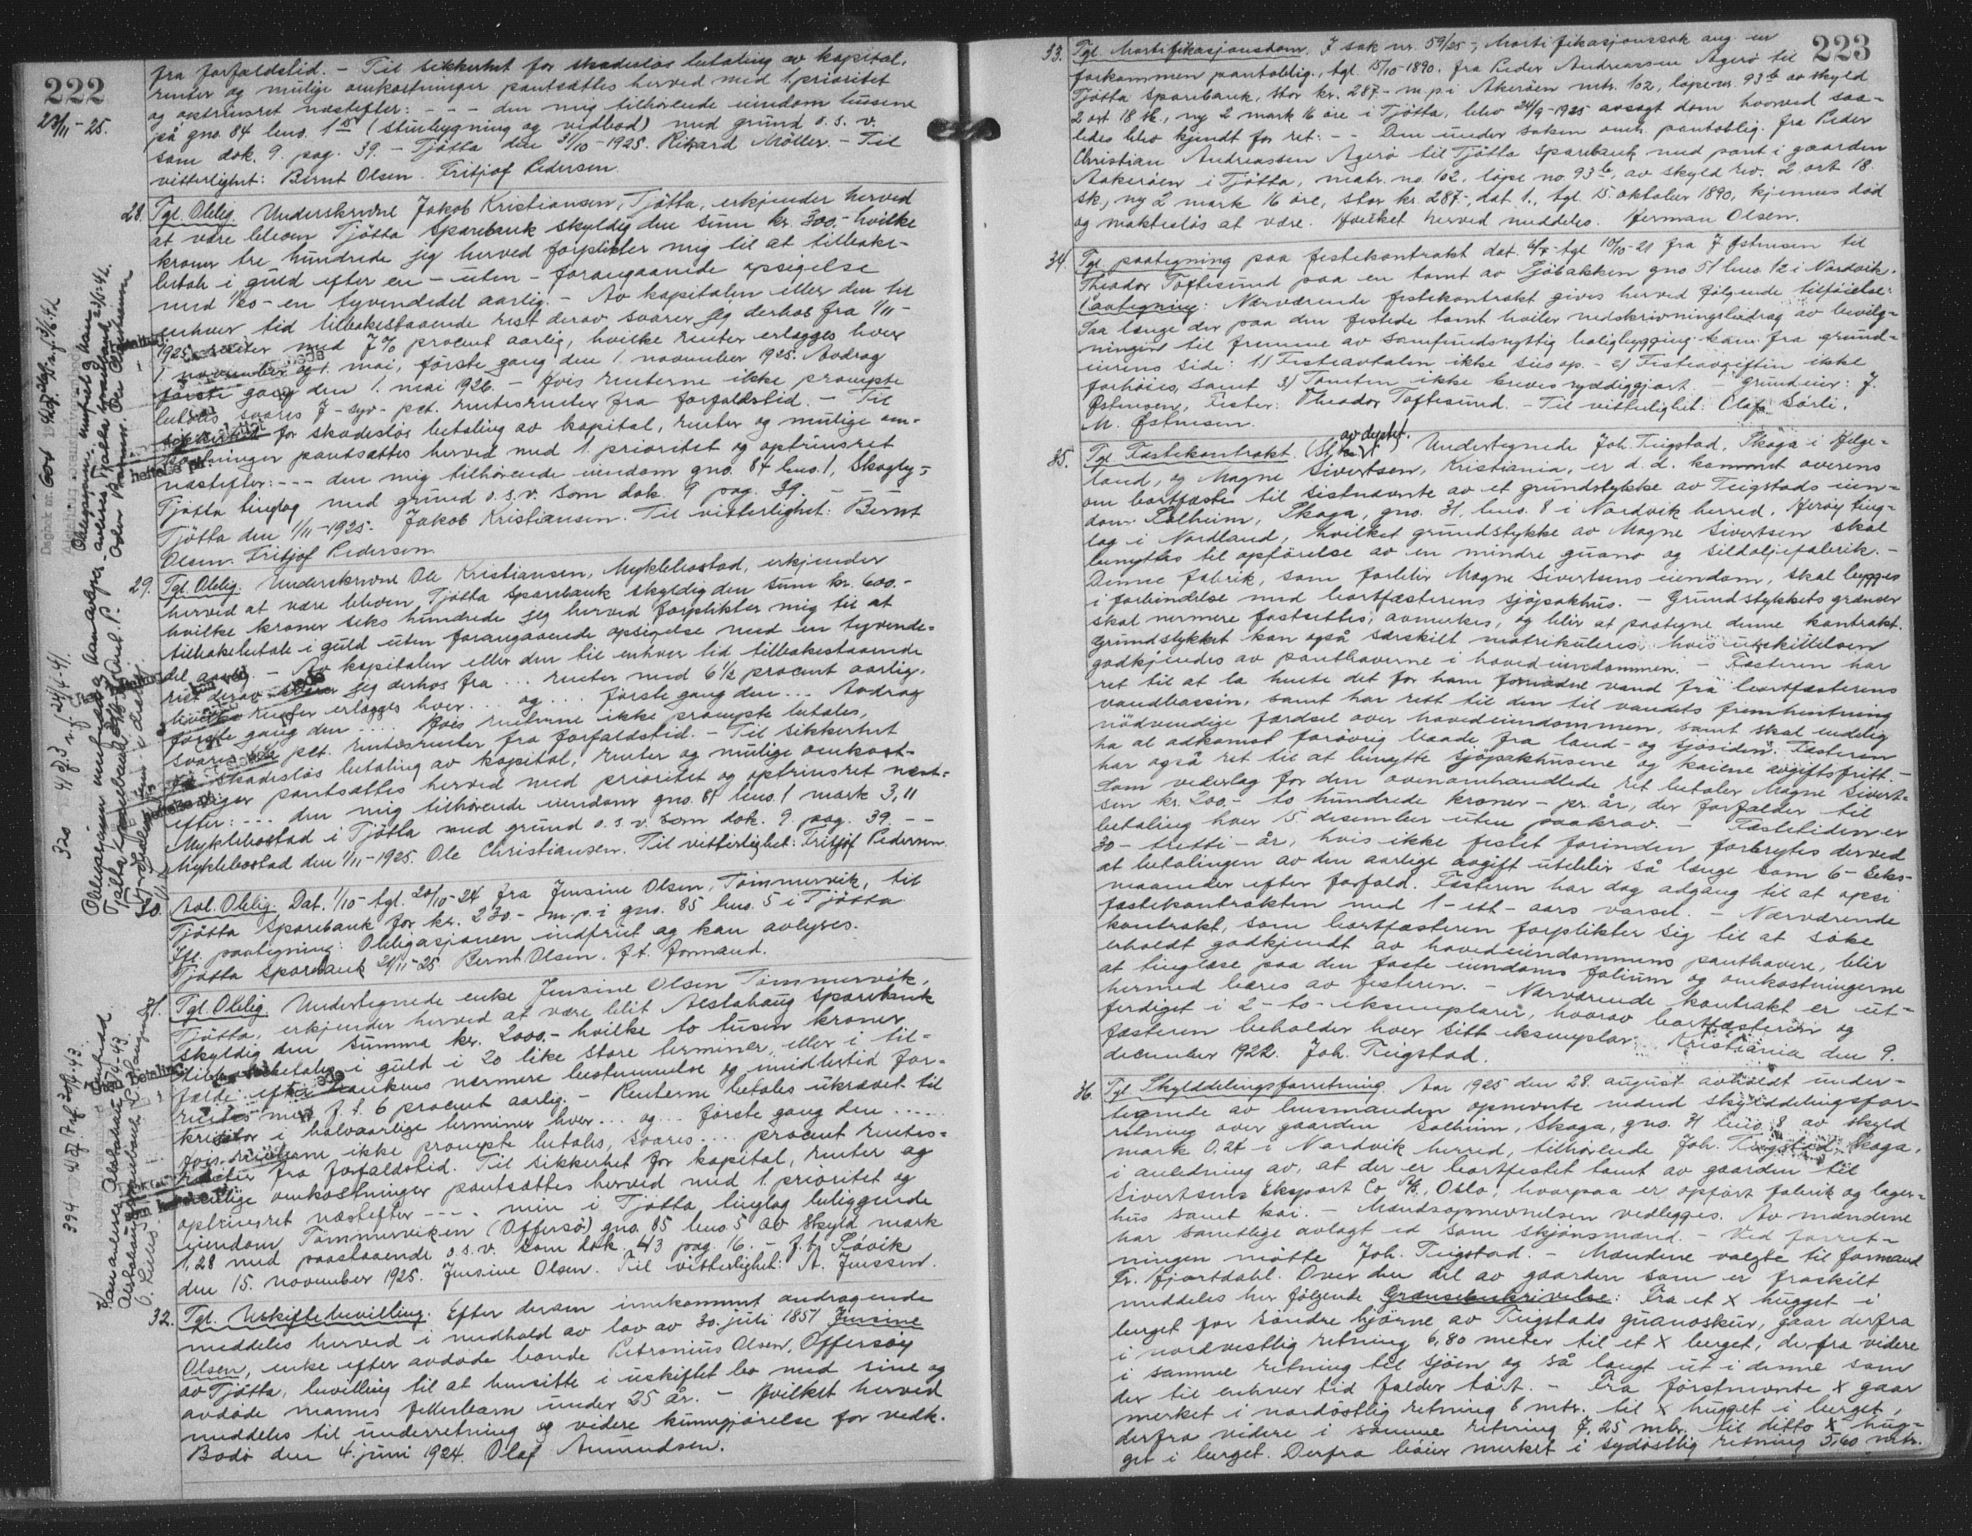 222
23/11-25.
fra forfaldstid. - Til sikkerhet for skadeslös betaling av kapital,
renter og mulige omkostninger pantsættes herved med 1 prioritet
og optrinsret næstefter: - - - den mig tilhörende eiendom husene
på gno. 84 bno. 1 (stuebygning og vedbod) med grund o.s.v.
som dok. 9. pag. 39. - Tjötta den 31/10-1925. Rikard Möller. - Til
vitterlighet: Bernt Olsen. Fritjof Pedersen.
28. Tgl. Oblig. Underskrevne Jakob Kristiansen, Tjötta, erkjender herved
at være bleven Tjötta Sparebank skyldig den sum kr. 300.- hvilke
kroner tre hundrede jeg herved forplikter mig til at tilbake-
betale i guld efter en - uten - foraugaaende opsigelse
med 1/20 - en tyvendedel aarlig. - Av kapitalen eller den til
enhver tid tilbakestaaende rest derav svarer jeg derhos fra 1/11-
1925 renter med 7% procent aarlig, hvilke renter erlægges hver
1 november og 1. mai, förste gang den 1. november 1925. Avdrag
förste gang den 1. mai 1926. - Hvis renterne ikke prompte
betales svares 7 - syv - pct. rentesrenter fra forfaldstid. - Til
sikkerhet for skadeslös betaling av kapital, renter og mulige om-
kostninger pantsættes herved med 1 prioritet og optrinsret
næstefter: - - - den mig tilhörende eiendom gno. 84 bno. 1, Skogly -
Tjötta tinglag med grund o.s.v. som dok. 9 pag. 39. - -
Tjötta den 1/11-1925. Jakob Kristiansen. Til vitterlighet: Bernt
Olsen. Fritjof Pedersen.
29. Tgl. Oblig. Underskrevne Ole Kristiansen, Myklebostad, erkjender
herved at være bleven Tjötta Sparebank skyldig den sum kr. 600.-
hvilke kroner seks hundrede jeg herved forplikter mig til at
tilbakebetale i guld uten foraugaaende opsigelse med en tyvende-
del aarlig. - Av kapitalen eller den til enhver tid tilbakestaaende
rest derav svarer jeg derhos fra ... renter med 6 1/2 procent aarlig,
hvilke renter erlægges hver ... og ... förste gang den ... Avdrag
förste gang den ... Hvis renterne ikke prompte betales,
svares pct. rentesrenter fra forfaldstid. - Til sikkerhet
for skadeslös betaling av kapital, renter og mulige omkost-
ninger pantsættes herved med prioritet og optrinsret næst-
efter: - - - den mig tilhörende eiendom gno. 84 bno. 1 mark 3,11
Myklebostad i Tjötta med grund o.s.v. som dok. 9. pag. 39. - -
Myklebostad den 1/11-1925. Ole Christiansen. Til vitterlighet: Fritjof Pedersen.
30. Avl. Oblig. Dat. 1/10 - tgl. 20/10-24 fra Jensine Olsen, Tömmervik, til
Tjötta Sparebank for kr. 230.- m.p.i gno. 85 bno. 5 i Tjötta
Ifl. paategning: Obligasjonen indfriet og kan avlyses.
Tjötta Sparebank 21/11-25 Bernt Olsen. f.t. formand.
31. Tgl. Oblig. Undertegnede enke Jensine Olsen Tömmervik,
Tjötta, erkjender herved at være blit Alstahaug Sparebank
skyldig den summa kr. 2000.- hvilke to tusen kroner
tilbakebetales i guld i 20 like store terminer, eller i til-
fælde efter bankens nærmere bestemmelse og imidlertid for-
rentes med f.t. 6 procent aarlig. - Renterne betales ukrævet til
kreditor i halvaarlige terminer hver ... og ... förste gang den .....
Hvis renterne ikke prompte betales, svares .... procent rentes-
renter fra forfaldstid. Til sikkerhet for kapital, renter og
mulige omkostninger pantsættes herved med 1 prioritet og
optrinsret næstefter - - - - min i Tjötta tinglag beliggende
eiendom Tömmerviken (Offersö) gno. 85 bno. 5 av skyld mark
1,28 med paastaaende o.s.v. som dok. 43 pag. 16. - f.t. Sövik
den 15. november 1925. Jensine Olsen. Til vitterlighet: A. Jenssen.
32. Tgl. Uskiftebevilling. Efter derom innkommet andragende
meddeles herved i medhold av lov av 30. juli 1851 Jensine
Olsen, enke efter avdöde bonde Petronius Olsen, Offersöy
av Tjötta, bevilling til at hensitte i uskiftet bo med sine og
avdöde mannes fellesbarn under 25 år. - Hvilket herved
meddeles til underretning og videre kunngjörelse for vedk.
Bodö den 4. juni 1924. Olaf Amundsen.
223
33. Tgl. Mortifikasjonsdom. I sak nr. 59/25 -, Mortifikasjonssak ang. en
forkommen pantoblig., tgl. 15/10-1890. fra Peder Andreassen Agerö til
Tjötta Sparebank, stor kr. 287.- m.p.i Akeröen mtr. 102, löpenr. 93b av skyld
2 ort 18 sk, ny 2 mark 16 öre i Tjötta, blev 24/9-1925 avsagt dom hvorved saa-
ledes blev kjendt for ret: - - Den under saken omh. pantoblig. fra Peder
Christian Andreassen Agerö til Tjötta Sparebank med pant i gaarden
Aakeröen i Tjötta, matr. no. 102. löpe no. 93b, av skyld rev. 2 ort 18.
sk, ny 2 mark 16 öre, stor kr. 287.- dat. 1., tgl. 15. oktober 1890, kjennes död
og makteslös at være. Hvilket herved meddeles. Herman Olsen.
34. Tgl. paategning paa festekontrakt dat. 4/8- tgl 10/10-21 fra J Östensen til
Theodor Toftesund paa en tomt av Sjöbakken gno 51 bno. 12 i Nordvik.
Paategning: Nærværende festekontrakt gives herved fölgende tilföielse:
Saa længe der paa den festede tomt hviler nedskrivningsbidrag av bevilg-
ningen til fremme av samfundsnyttig boligbygging kan fra grund-
eierens side: 1) Festeavtalen ikke sies op. - 2) Festeavgiften ikke
forhöies, samt 3) Tomten ikke kreves ryddiggjort. - Grundeier: J
Östensen, Fester: Theodor Toftesund. - Til vitterlighet: Olaf Sörli.
M. Östensen.
35. Tgl. Fæstekontrakt. av deptet. Undertegnede Joh. Tiigstad, Skaga i Helge-
land, og Magne Sivertsen, Kristiania, er d.d. kommet overens
om bortfæste til sistnævnte av et grundstykke av Tiigstads eien-
dom Solheim, Skaga, gno. 31 bno. 8 i Nordvik herred, Heröy ting-
lag i Nordland, hvilket grundstykke av Magne Sivertsen skal
benyttes til opförelse av en mindre guano og sildoljefabrik. -
Denne fabrik, som forblir Magne Sivertsens eiendom, skal bygges
i forbindelse med bortfæsterens sjöpakhus. - Grundstykkets grænser
skal nærmere fastsettes, avmerkes, og blir at paategne denne kontrakt.
Grundstykket kan også særskilt matrikuleres, hvis utskillelsen
godkjendes av panthaverne i hovedeiendommen. - Fæsteren har
ret til at la hente det for ham fornödne vand fra bortfæsterens
vandbassin, samt har rett til den til vandets fremhentning
nödvendige færdsel over hovedeiendommen, samt skal endelig
ha al adkomst forövrig baade fra land - og sjösiden. Fæsteren
har også ret til at benytte sjöpakhusene og kaiene avgiftsfritt. -
Som vederlag for den ovenomhandlede ret betaler Magne Sivert-
sen kr. 200.- to hundrede kroner - pr. år, der forfalder til
betaling hver 15 desember uten paakrav. - Fæstetiden er
30 - tretti - år, hvis ikke festet forinden forbrytes derved
at betalingen av den aarlige avgift utebliv så længe som 6 - seks-
maaneder efter forfald. Fæsteren har dog adgang til at opsi
fæstekontrakten med 1 - ett - aars varsel. - Nærværende
kontrakt, som bortfæsteren forplikter sig til at söke
erholdt godkjendt av hovedeiendommens panthavere, blir
at tinglæse paa den faste eiendoms folium og omkostningerne
hermed bæres av fæsteren. - Nærværende kontrakt er ut-
ferdiget i 2 - to - eksemplarer, hvorav bortfæsteren og
fæsteren beholder hver sitt eksemplar. Kristiania den 9.
december 1922. Joh. Tiigstad.
36. Tgl. Skylddelingsforretning. Aar 1925 den 28. august avholdt under-
tegnede av lensmanden opnevnte mænd skylddelingsfor-
retning over gaarden Solheim, Skaga, gno. 31 bno. 8 av skyld
mark 0.24 i Nordvik herred, tilhörende Joh. Tiigstad, Skaga,
i anledning av, at der er bortfestet tomt av gaarden til
Sivertsens Eksport Co A/S, Oslo, hvorpaa er opfört fabrik og lager-
hus samt kai. - Mændsopnevnelsen vedlegges. Av mændene
har samtlige avlagt ed som skjönsmænd. - Ved forret-
ningen mötte Joh. Tiigstad. - Mændene valgte til formand
Fr. Fjortdahl. Over den del av gaarden som er fraskilt
meddeles her fölgende Grænsebeskrivelse: Fra et x hugget i
berget for söndre hjörne av Tiigstads guanoskur, gaar derfra
i nordvestlig retning 6,80 meter til et x berget, derfra videre
i samme retning til sjöen og så langt ut i denne som
der til enhver tid falder tört. - Fra förstnevnte x gaar
merket i nordöstlig retning 6 mtr. til x hugget i berget,
derfra videre i samme retning 7,25 mtr. til ditto x hug-
get i berget. Derfra böier merket i sydöstlig retning 5,60 mtr.